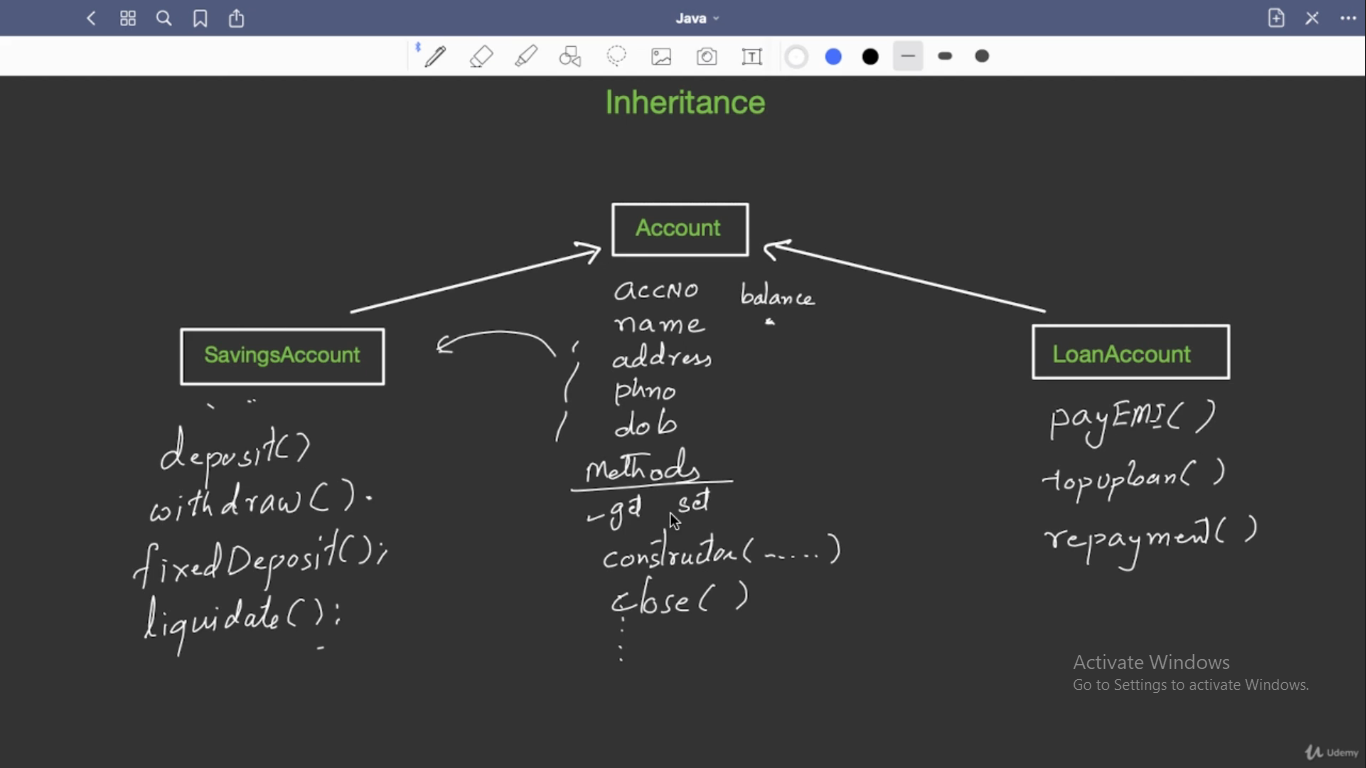 Java
T
Inheritance
Account
accNo balance
name
address
phno
dob
Methods
get set
constructor(.....)
close( )
SavingsAccount
deposit()
withdraw().
fixedDeposit();
liquidate();
LoanAccount
payEMI( )
topuploan( )
repayment( )
Activate Windows
Go to Settings to activate Windows.
Udemy